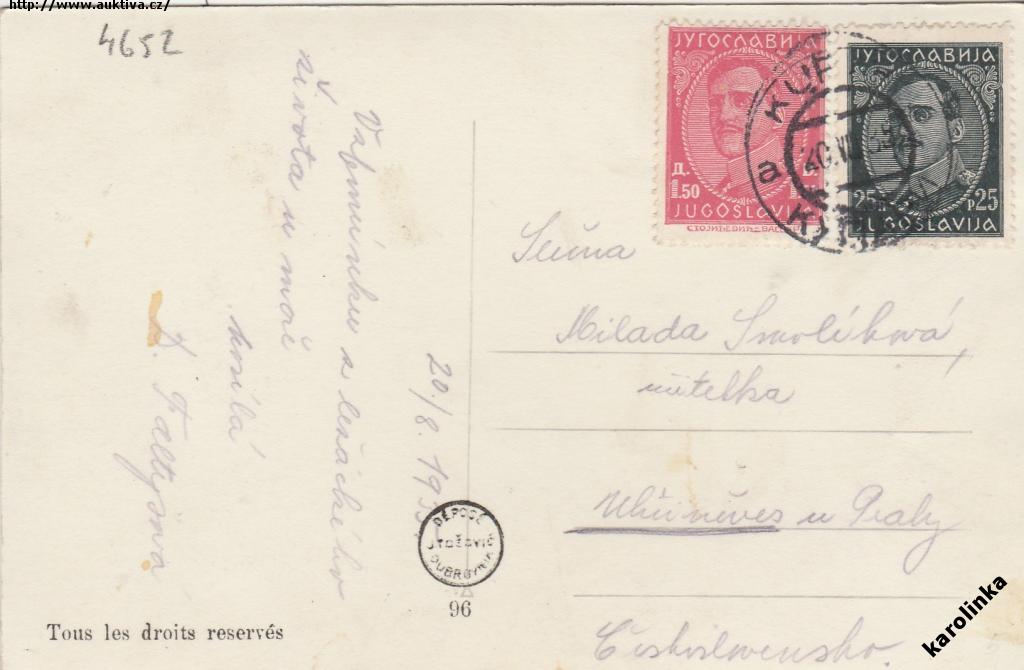 http://www.auktiva.cz/
4652
20./8. 193
Vzpomínku z lenáckého
života u moře
A. Faltysová
ЈУГОСЛАВИЈА
Д.
1.50
JUGOSLAVIJA
ЈУГОСЛАВИЈА
25 P 25
JUGOSLAVIJA
a
Slečna
Milada Smolíková,
učitelka
Uhříněves u Prahy
Československo.
DÉPOSÉ
J.TOŠOVIĆ
DUBROVNIK
96
Tous les droits reservés
karolinka